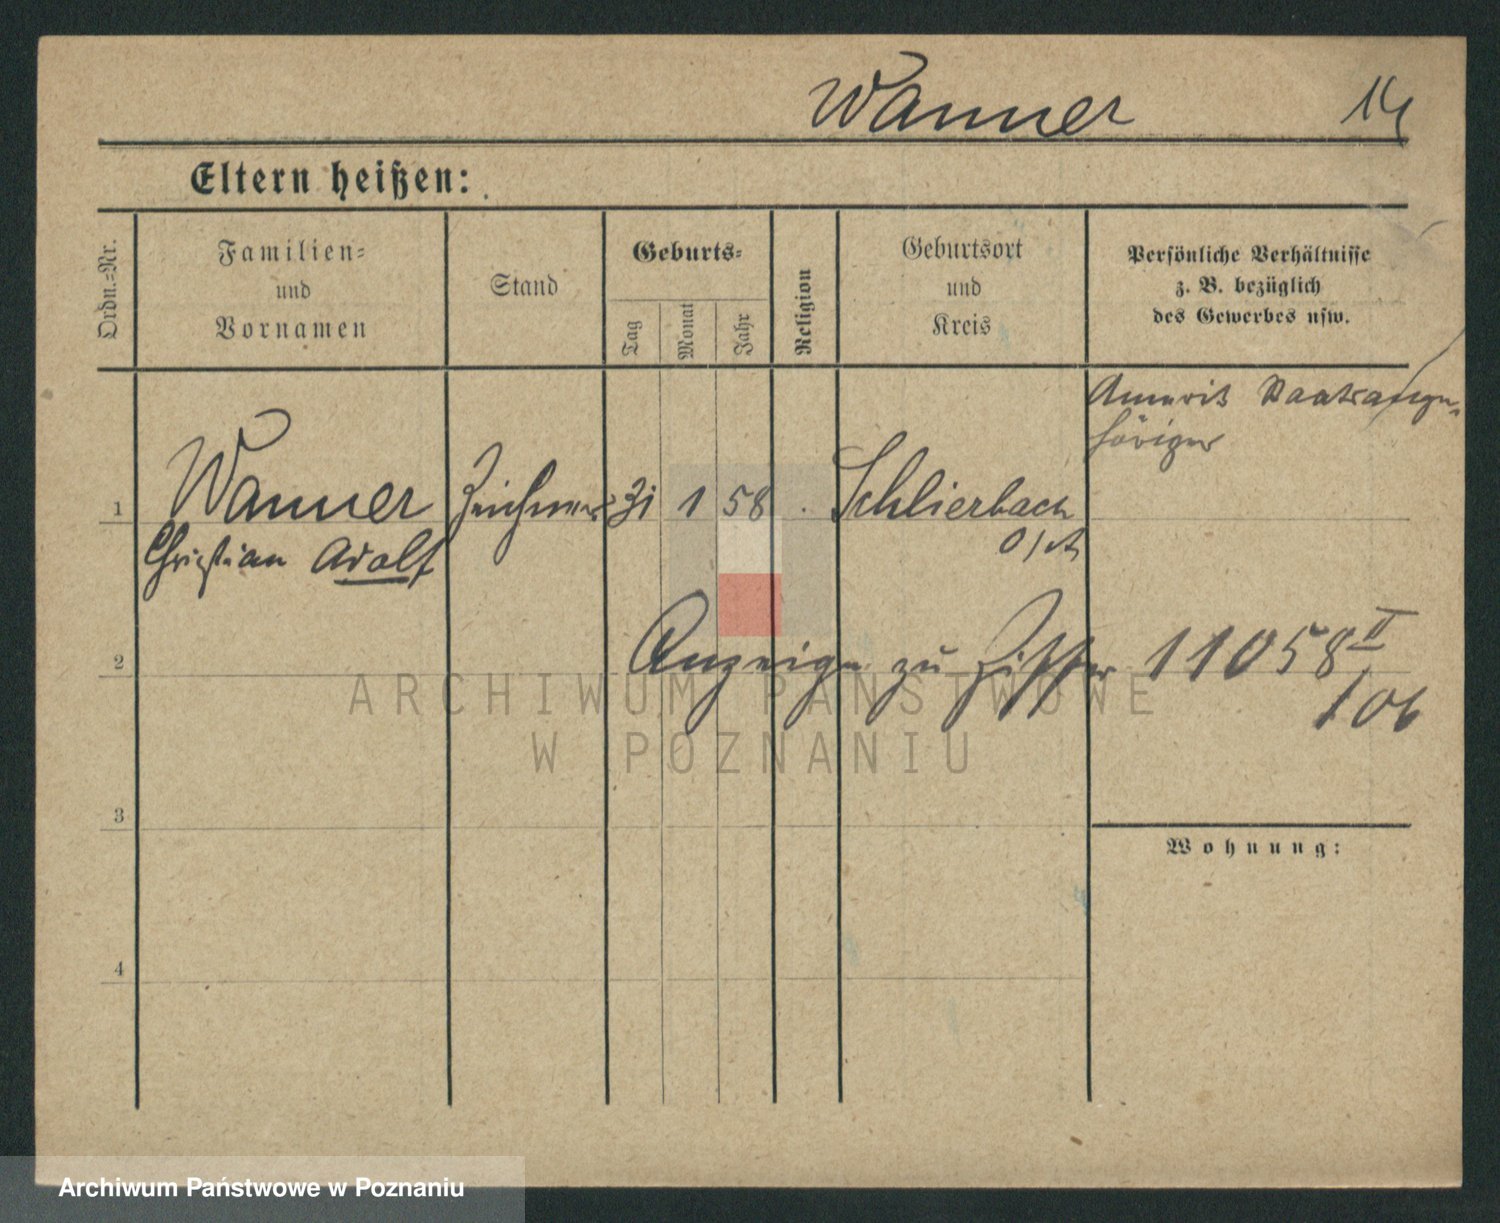 Wanner 14
Eltern heißen:
Ordn.-Nr.
Familien-
und
Vornamen
Stand
Geburts-
Tag
Monat
Jahr
Religion
Geburtsort
und
Kreis
Persönliche Verhältnisse
z. B. bezüglich
des Gewerbes usw.
Amerik Staatsange-
höriger
1 Wanner Zeichner 31 1 58 Schlierbach
Christian Adolf
Anzeige zu Ziffer 11058 II
/06
2
3
4
Wohnung:
ARCHIWUM PAŃSTWOWE
W POZNANIU
Archiwum Państwowe w Poznaniu